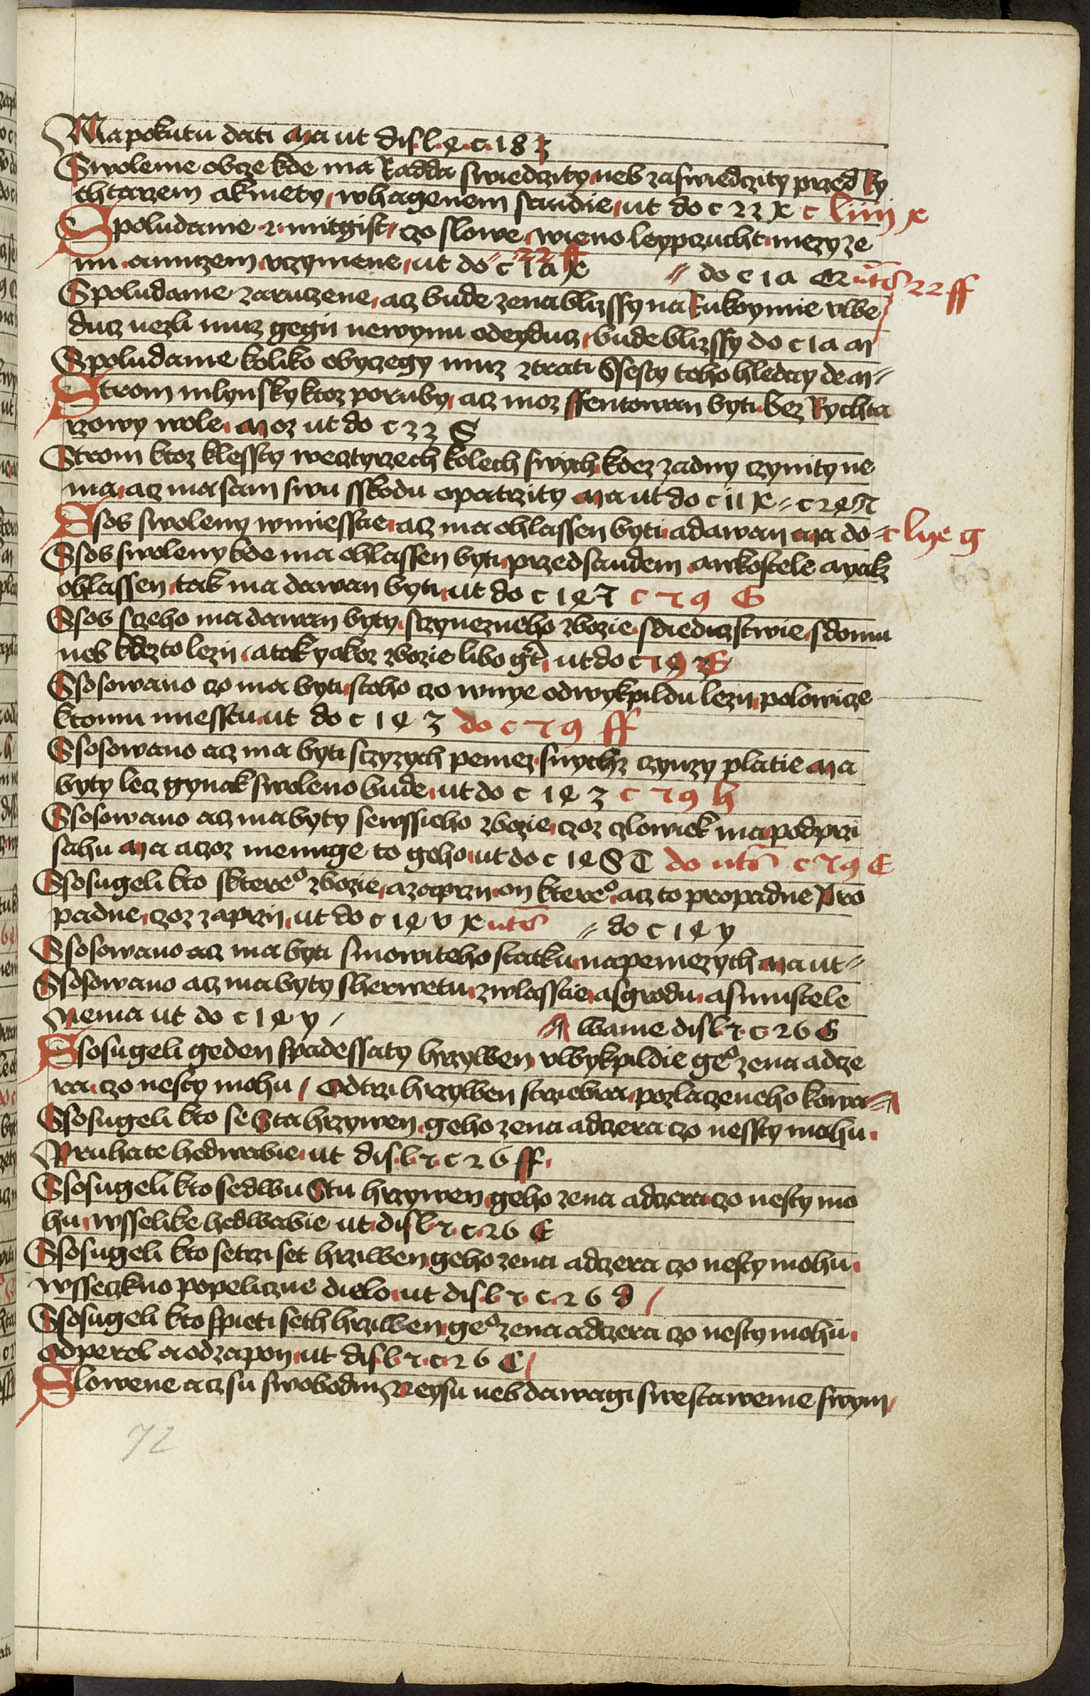 Ma pokutu dati Ma ut disl. 4. c. 18 z
Swolenie obcze kde ma Radda swiedczity neb zaswiedczity przed Ry
chtarzem akmety, whagenem saudie, ut do c 22 x c liiij x
Spoludanie 2. mitgift, czo slowe, wieno leypczucht mezy ze
nu amuzem vczynene, ut do c 1a x 22 ff // do c 1a
Spoludanie zaruczene, acz bude zena blizssy na Rukoymie vwe
ducz nezli muz gegn newynu odeyducz, bude blizssy do c 1a m
Spoludanie koliko obyczegy muz ztrati Ssesty toho hleday de m //
Strom mlynsky ktoz poruby, acz moz ssentowan byti bez Rychta
rzowy wole, Moz ut do c 22 S
Strom ktoz klessty wecztyrzech kolech swych, kdez zadny czynity ne
ma, acz ma sam swu sskodu opatrzity Ma ut do c 11 x // c 24
Ssos swoleny wmiesstie, acz ma ohlassen byti, adawan Ma do c lxx g
Ssos swoleny kde ma ohlassen byti, przed saudem, awkostele ayak
ohlassen, tak ma dawan byti, ut do c 14 7 c 79 G
Ssos szeho ma dawan byty, sczynezneho zbozie, sdiediczstwie, sdomu
neb kdez to lezii, atak yakoz zbozie libo ut do c 79
Ssosowano czo ma byti, stoho czo wniye odwykpildu lezii, polowicze
ktomu miesstu, ut do c 14 z do c 79 ff
Ssosowano acz ma byti sczyzych peniez, snychz czynzy platie Ma
byty lecz gynak swoleno bude, ut do c 14 z c 79 h
Ssosowano acz ma byty sewssieho zbozie, czoz czlowiek ma, podprzi
sahu Ma aczoz menuge to geho, ut do c 14 S T do c 79 E
Ssosugeli kto sktereo zbozie, azaprzii on ktereo acz to propadne Pro
padne, czoz zaprzii, ut do c 14 v x // do c 14 y
Ssosowano acz ma byti smowiteho statku, napeniezych Ma ut //
Ssosowano acz ma byty sherwetu, zwlasstie, asgradu, asmustele
Nema ut do c 14 y / wanie disl 2. c 26 G
Ssosugeli geden spadessaty hrzywen, vwykpildie geo zena adcze
ra, czo nesty mohu, Odtrzi hrzywen strziebra, pozlaczeneho kowa
Ssosugeli kto seSta hrzywen, geho zena adczera czo nessty mohu,
Pruhate hedwabie, ut disl. 2. c 26 ff,
Ssosugeli kto sedwuStu hrzywen, geho zena adczera, czo nesty mo
hu, wsselike hedwabie ut disl 2. c. 26 E
Ssosugeli kto setrzi set hrziwen, geho zena adczera czo nesty mohu,
wsseczkno popeliczne dielo, ut disl. 2. c. 26 d /
Ssosugeli kto spieti seth hrziwen, geo zena adczera czo nesty mohu,
Odperel a odzapon, ut disl. 2. c. 26 C /
Slowene acz su swobodni, Neysu neb dawagi swestawenie swym,
72